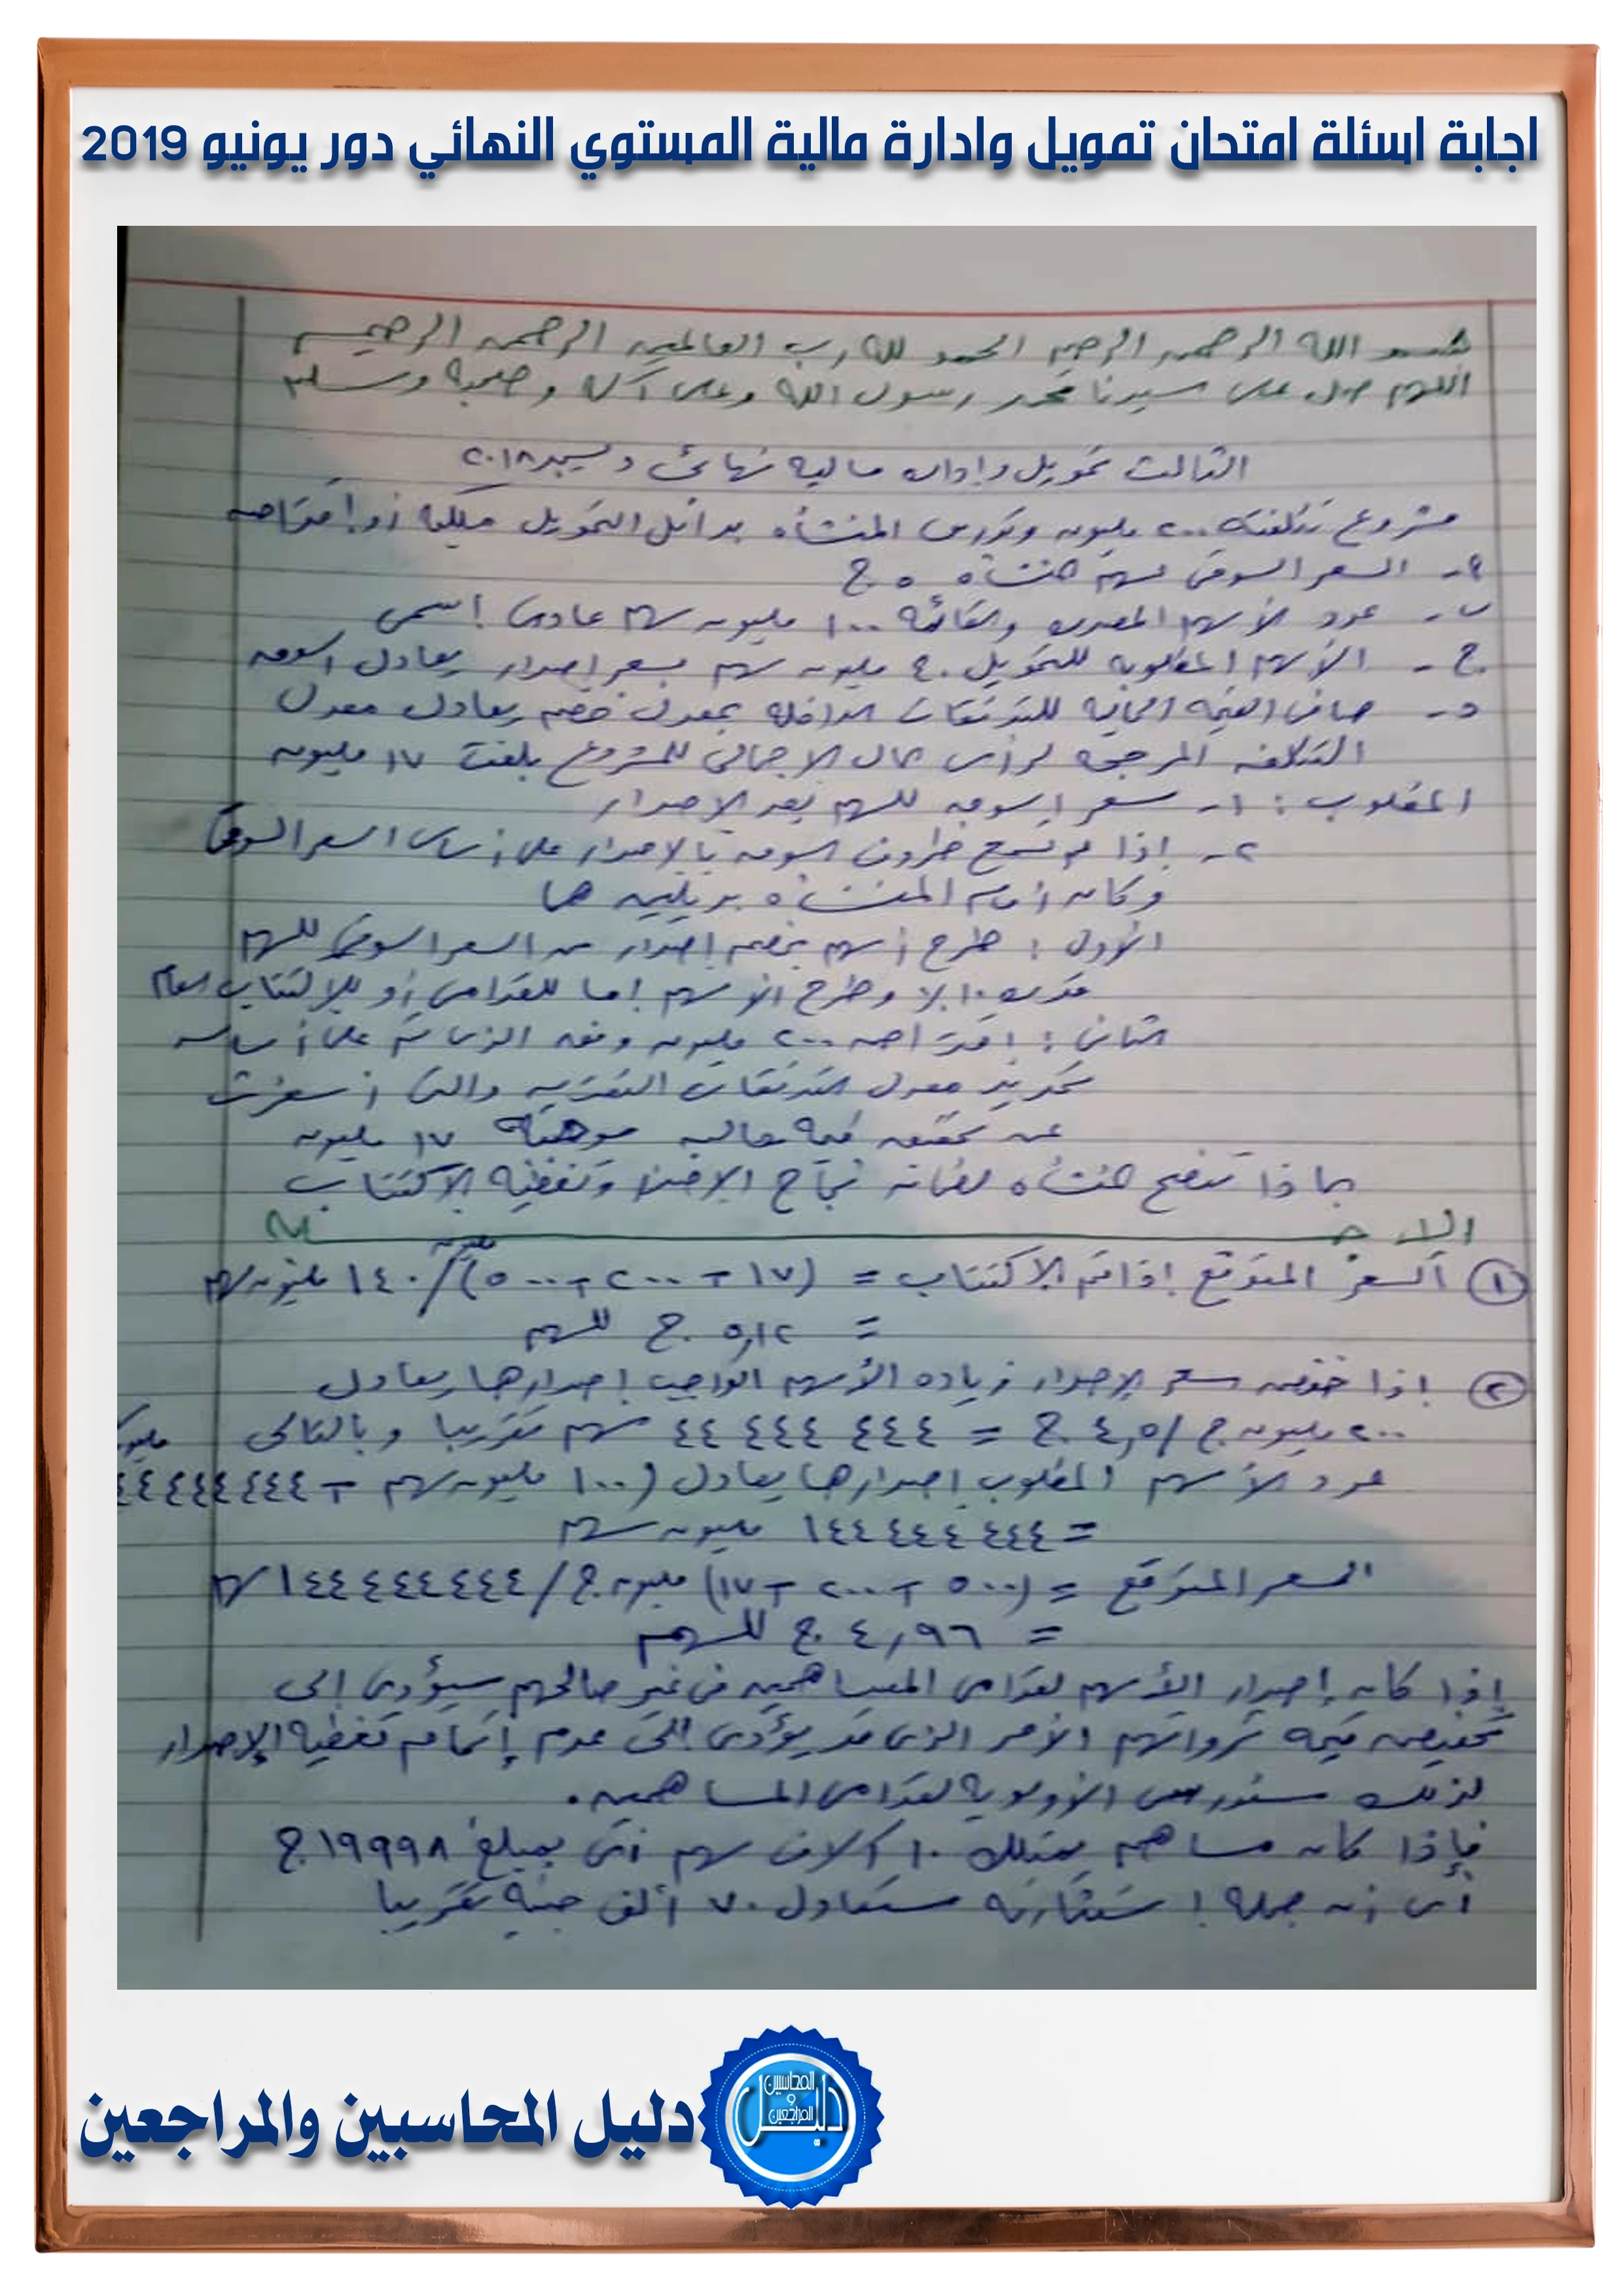 اجابة اسئلة امتحان تمويل وادارة مالية المستوي النهائي دور يونيو 2019
بسم الله الرحمن الرحيم الحمد لله رب العالمين الرحمن الرحيم
اللهم صل على سيدنا محمد رسول الله وعلى آله وصحبه وسلم
الثالث تمويل وإدارة مالية نهائى ديسمبر ٢٠١٨
مشروع تكلفته ٢٠٠ مليون وتدرس المنشأه بدائل التمويل ملكية أو إقتراض
٩- السعر السوقى لسهم المنشأه ٥ ج
ب- عدد الأسهم المصدره والقائمة ١٠٠ مليون سهم عادى إسمى
ج- الأسهم المطلوبة للتمويل ٤٠ مليون سهم بسعر إصدار يعادل السوق
د- صافى القيمة الحالية للتدفقات الداخلة بمعدل خصم يعادل معدل
التكلفه المرجحه لرأس المال الإجمالى للمشروع بلغت ١٧ مليون
المطلوب : ١- سعر السوق للسهم بعد الإصدار
٢- إذا لم تسمح ظروف السوق بالإصدار على أساس السعر السوقى
وكان أمام المنشأه بديلين هما
الأول : طرح أسهم بخصم إصدار من السعر السوقى للسهم
قدره ١٠٪ وطرح الأسهم إما للقدامى أو للإكتتاب العام
الثانى : إقتراض ٢٠٠ مليون وفقه الذى تم على أساسه
تحديد معدل التدفقات النقديه والتى أسفرت
عن تحقيق قيمة حالية موجبة ١٧ مليون
بماذا تنصح المنشأه لضمان نجاح الإختيار وتغطية الإكتتاب
الإجابه
١ السعر المتوقع إذا تم الإكتتاب = (١٧ + ٢٠٠ + ٥٠٠) مليون / ١٤٠ مليون سهم
= ٥,١٢ ج للسهم
٢ إذا خفض سعر الإصدار زياده الأسهم الواجب إصدارها يعادل
٢٠٠ مليون ج / ٤,٥ ج = ٤٤ ٤٤٤ ٤٤٤ سهم تقريبا وبالتالى
عدد الأسهم المطلوب إصدارها يعادل (١٠٠ مليون سهم + ٤٤٤٤٤٤٤٤ مليون
= ١٤٤ ٤٤٤ ٤٤٤ مليون سهم
السعر المتوقع = (٥٠٠ + ٢٠٠ + ١٧) مليون ج / ١٤٤٤٤٤٤٤٤ سهم
= ٤,٩٦ ج للسهم
إذا كان إصدار الأسهم لقدامى المساهمين فى غير صالحهم سيؤدى إلى
تخفيض قيمة ثرواتهم الأمر الذى قد يؤدى إلى عدم إتمام تغطية الإصدار
لذلك ستدرس الأولوية لقدامى المساهمين .
فإذا كان مساهم يمتلك ١٠ آلاف سهم أى بمبلغ ١٩٩٩٨ ج
أى أن جملة إستثماراته ستعادل ٧٠ ألف جنية تقريبا
دليل المحاسبين والمراجعين
المحاسبين
و
المراجعين
دليل